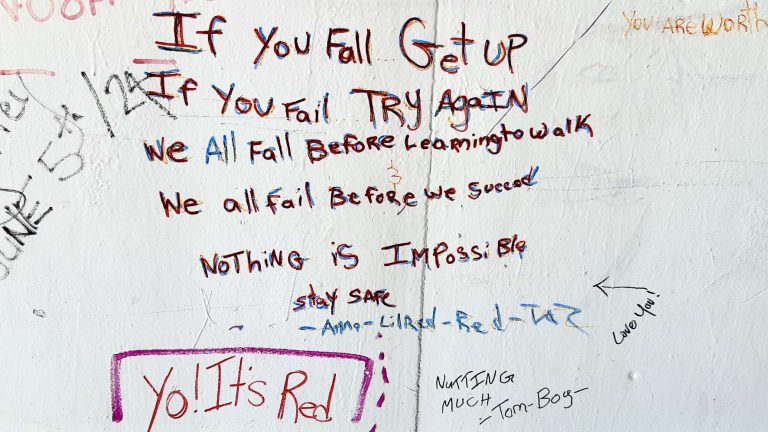 If You Fall Get up
YOU ARE WORTH
If You Fail TRY AgaIN
We All Fall Before Learning to walk
We all fail Before we Succed
NOTHING iS IMPossiBle
stay SAFE
Love You!
Yo! It's Red
NuTTING
MUCH
-Tom-Boy-
JUNE 5th / 24